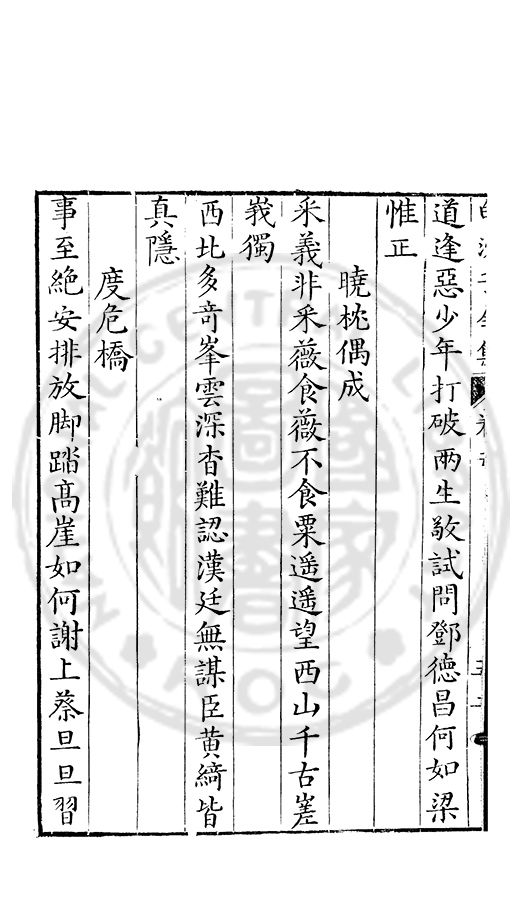 道逢惡少年打破兩生敬試問鄧德昌何如梁
惟正
曉枕偶成
采義非采薇食薇不食粟遥遥望西山千古嵯
峩獨
西北多奇峯雲深杳難認漢廷無謀臣黄綺皆
真隱
度危橋
事至絶安排放脚踏高崖如何謝上蔡旦旦習